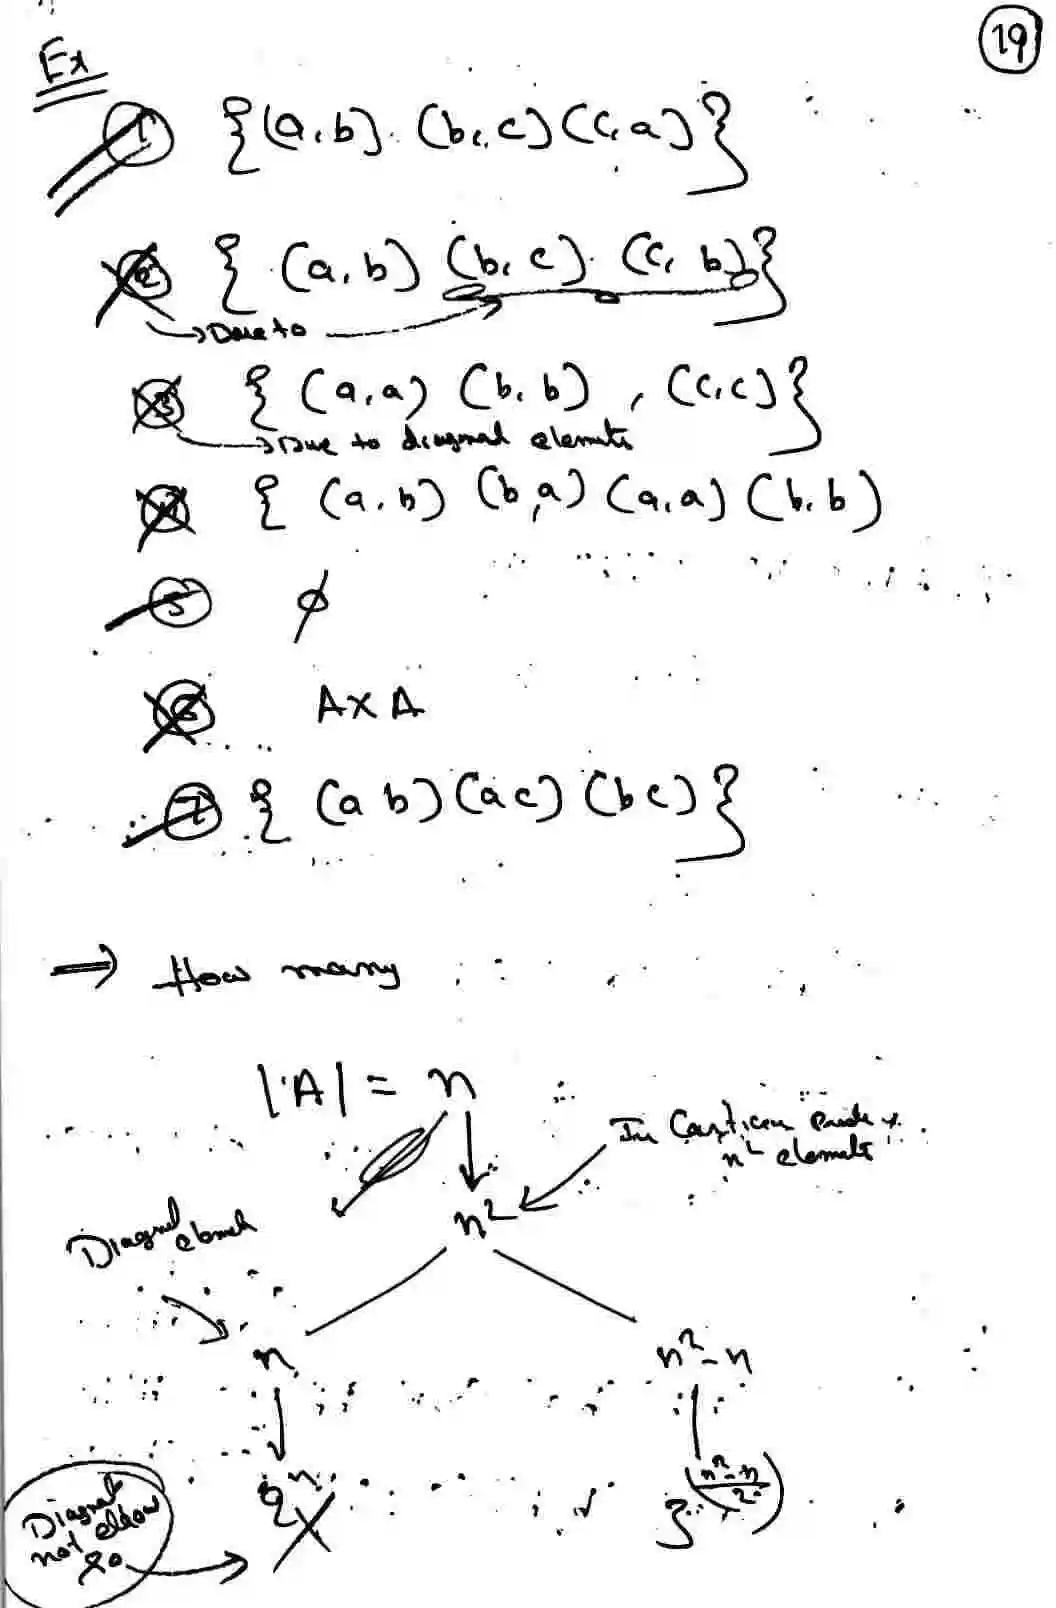 19
Ex
1 {(a,b). (b,c) (c,a)}
2 { (a,b) (b,c). (c,b)}
→ Due to
3 { (a,a) (b,b) , (c,c)}
→ Due to diagonal elements
4 { (a,b) (b,a) (a,a) (b,b)
5 ∅
6 A×A
7 { (a b) (a c) (b c)}
⇒ How many
|A| = n
In
n² elements
n²
Diagonal
n n²-n
2ⁿ 3^((n²-n)/2)
Diagonal
not allow
so